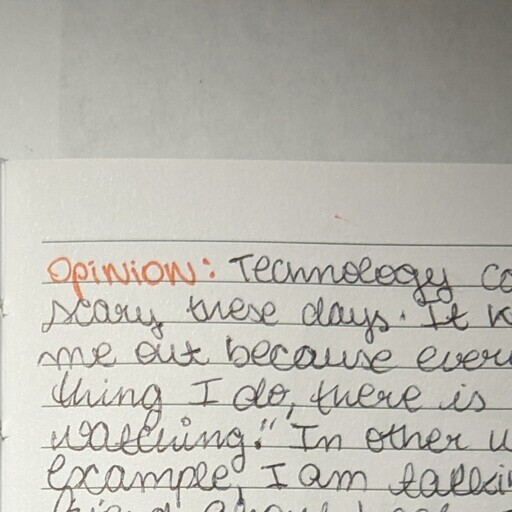 Opinion: Technology
scary these days. It
me out because
thing I do, there is
watching." In other
example, I am